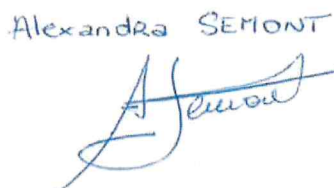 Alexandra SEMONT
A Semont